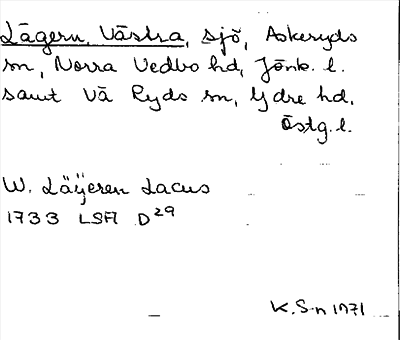 Lägern, Västra, sjö, Askeryds
sn, Norra Vedbo hd, Jönk. l.
samt Vä Ryds sn, Ydre hd,
Östg. l.
W. Läÿeren Lacus
1733 LSA D29
K. S-n 1971